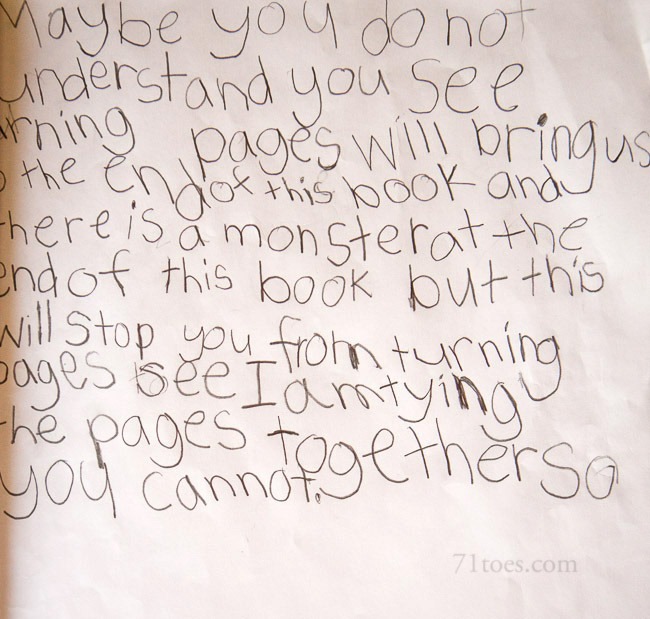 Maybe you do not
understand you see
urning pages will bring us
o the end of this book and
there is a monster at the
end of this book but this
will stop you from turning
pages see I am tying
the pages together so
you cannot.
71toes.com